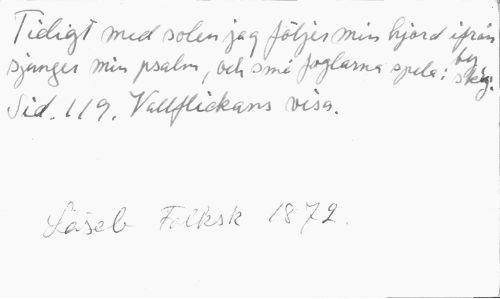 Tidigt med solen jag följer min hjord ifrån by
sjunger min psalm, och små foglarna spela i skog.
Sid. 119. Vallflickans visa.
Läseb Folksk 1872.